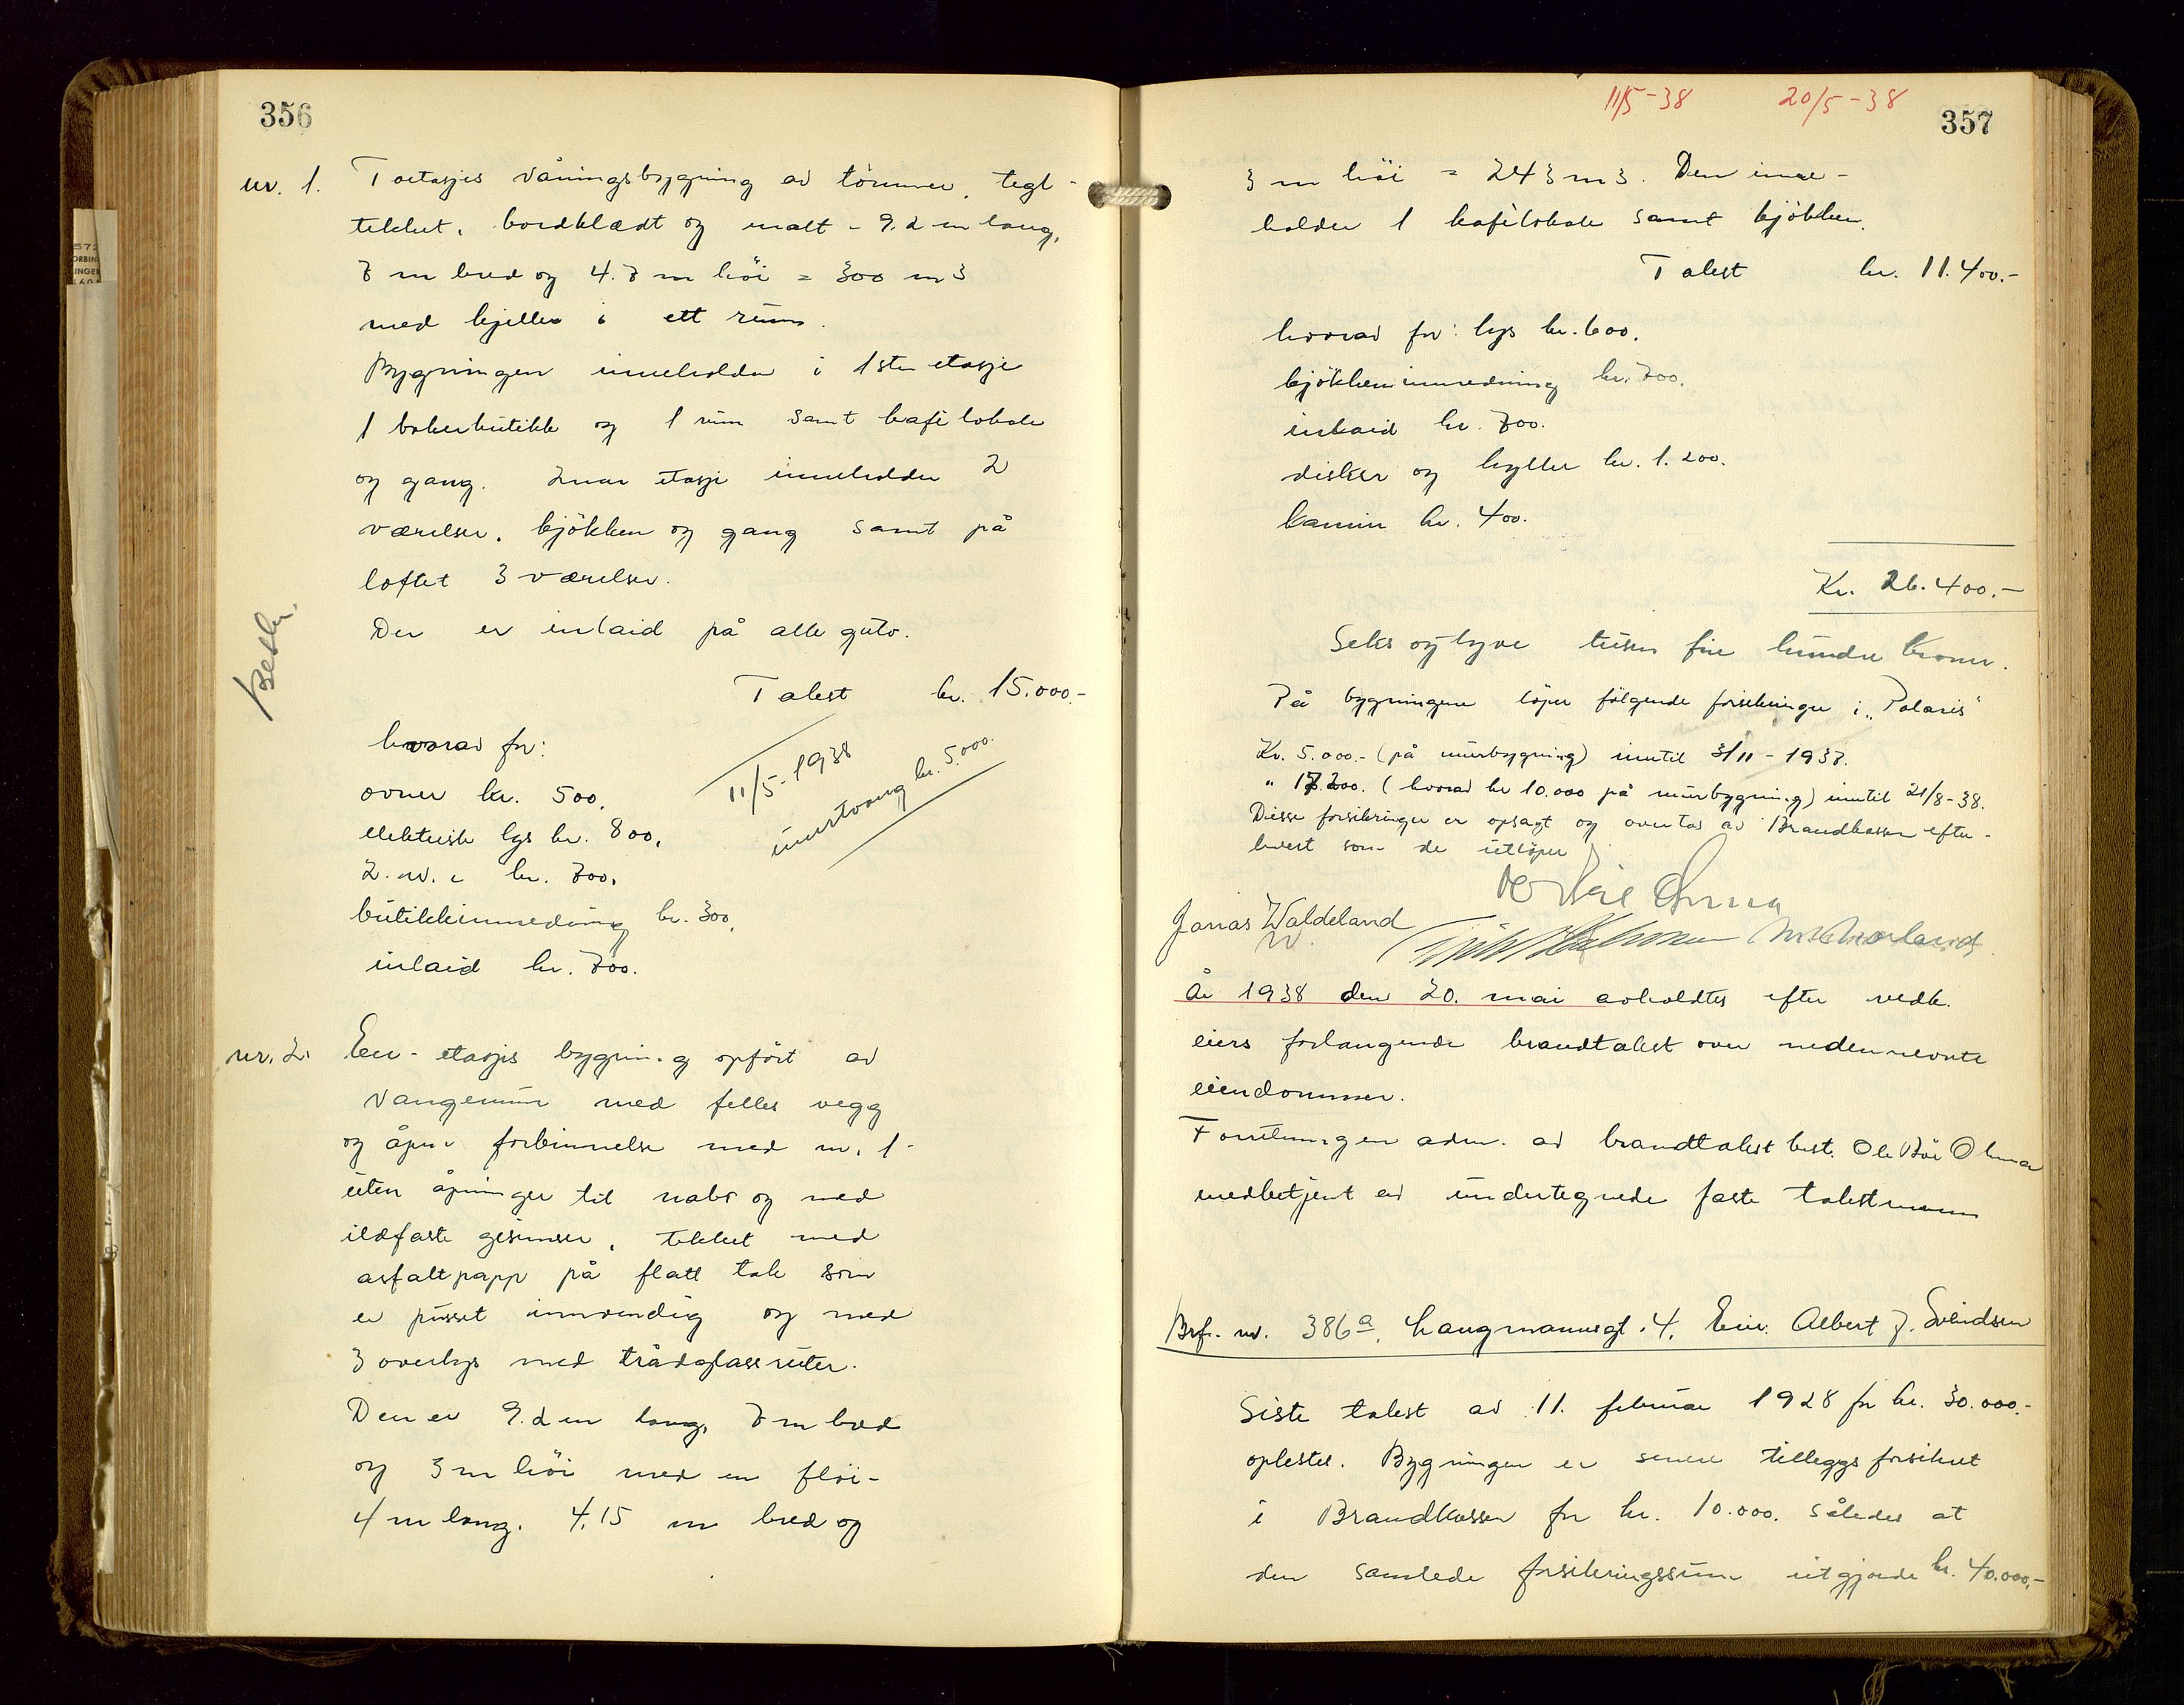 356
nr. 1. Toetasjes våningsbygning av tømmer, tegl-
tekket, bordklædt og malt - 9.2 m lang,
7 m bred og 4.7 m höi = 300 m3
med kjeller i ett rum.
Bygningen inneholder i 1ste etasje
1 bakerbutikk og 1 rum samt kafelokale
og gang. 2nen etasje inneholder 2
værelser, kjökken og gang samt på
loftet 3 værelser.
Der er inlaid på alle gulv.
Takst kr. 15.000.-
hvorav for:
ovner kr. 500.
elektrisk lys kr. 800,
2. w.c kr. 700,
butikkinnredning kr. 300,
inlaid kr. 700.
11/5-1938
kr. 5.000.
nr. 2. Een-etasjes bygning opfört av
Vangemur med felles vegg
og åpen forbinnelse med nr. 1-
uten åpninger til nabo og med
ildfaste gesimser, tekket med
asfaltpapp på flatt tak som
er pusset innvendig og med
3 overlys med trådglassruter.
Den er 9.2 m lang, 7 m bred
og 3 m höi med en flöi-
4 m lang, 4,15 m bred og
11/5-38 20/5-38
357
3 m höi = 243 m3. Den inne-
holder 1 kafélokale samt kjökken.
Takst kr. 11.400.-
hvorav for: lys kr. 600.
kjökkeninnredning kr. 700.
inlaid kr. 700.
disker og hyller kr. 1.200.
kamin kr. 400.
Kr. 26.400.-
Seks og tyve tusen fire hundre kroner.
På bygningene löper fölgende forsikringer i "Polaris"
Kr. 5.000.- (på murbygning) inntil 3/11-1938.
" 17.200. (hvorav kr 10.000 på murbygning) inntil 21/8-38.
Disse forsikringer er opsagt og overtas av Brandkassen efter-
hvert som de utlöper
Jonas Waldeland
År 1938 den 20. mai avholdtes efter vedk.
eiers forlangende brandtakst over nedennevnte
eiendommer.
Forretningen adm. av brandtakst best. Ole Böe Olmen
medbetjent av undertegnede faste takstmenn
Brf. nr. 386a, Langmannsgt. 4. Eier: Albert J. Svendsen
Siste takst av 11. februar 1928 for kr. 30.000.-
oplestes. Bygningen er senere tilleggsforsikret
i Brandkassen for kr. 10.000. således at
den samlede forsikringssum utgjorde kr. 40.000,-